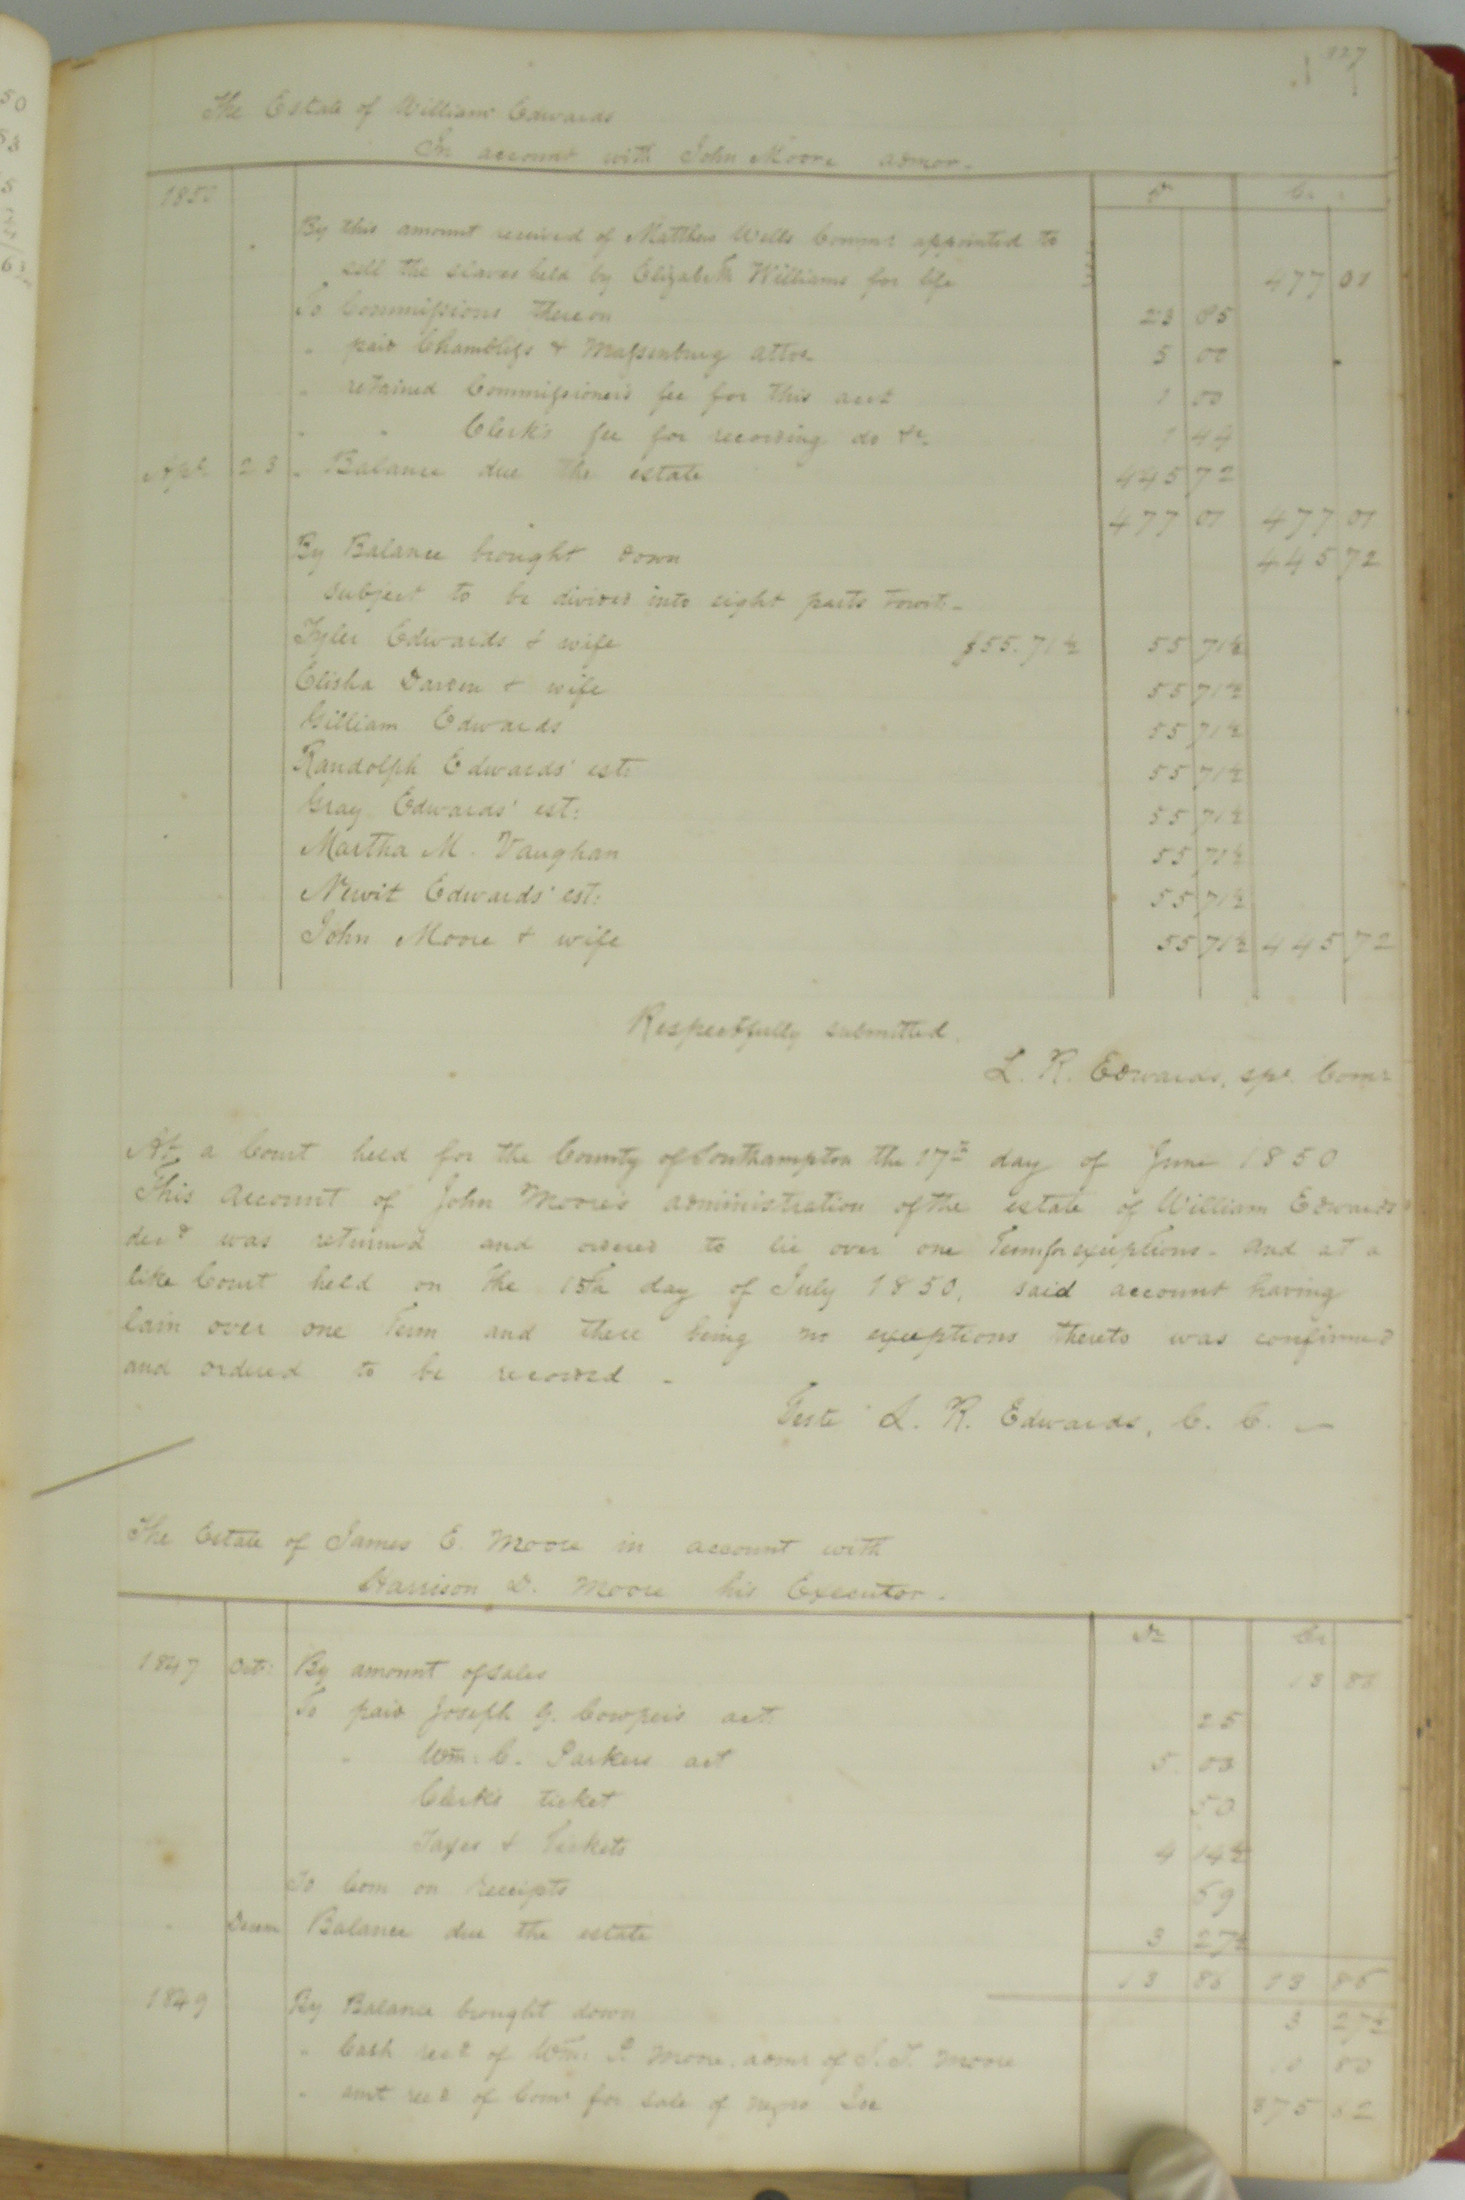 127
The Estate of William Edwards
In account with John Moore admor.
Dr Cr
1850
By this amount received of Matthew Wells Commr appointed to
sell the slaves held by Elizabeth Williams for life 477 01
To Commissions thereon 23 85
" paid Chambliss & Massenburg attos. 5 00
" retained Commissioners fee for this acct 1 00
" " Clerk's fee for recording do &c. 1 44
Apl. 23 " Balance due the estate 445 72
477 01 477 01
By Balance brought down 445 72
subject to be divided into eight parts towit.
Tyler Edwards & wife $55.71½ 55 71½
Elisha Darden & wife 55 71½
William Edwards 55 71½
Randolph Edwards' est: 55 71½
Gray Edwards' est: 55 71½
Martha M. Vaughan 55 71½
Newit Edwards' est: 55 71½
John Moore & wife 55 71½ 445 72
Respectfully submitted.
L. R. Edwards, spl. Comr
At a Court held for the County of Southampton the 17th day of June 1850
This Account of John Moore's administration of the estate of William Edwards
decd was returned and ordered to lie over one Term for exceptions. And at a
like Court held on the 15th day of July 1850, said account having
lain over one Term and there being no exceptions thereto was confirmed
and ordered to be recorded.
Teste L. R. Edwards, C. C.
The Estate of James E. Moore in account with
Harrison D. Moore his Executor.
Dr Cr
1847 Oct: By amount of sales 13 86
To paid Joseph G. Cowper's act 25
" Wm: C. Parkers act 5 00
Clerk's ticket 50
Taxes & Tickets 4 14½
To Com on receipts 69
" Decem Balance due the estate 3 27½
13 86 13 86
1849 By Balance brought down 3 27½
" Cash recd of Wm. P. Moore, admr of S. T. Moore 10 80
" amt recd of Comr for sale of negro 875 52